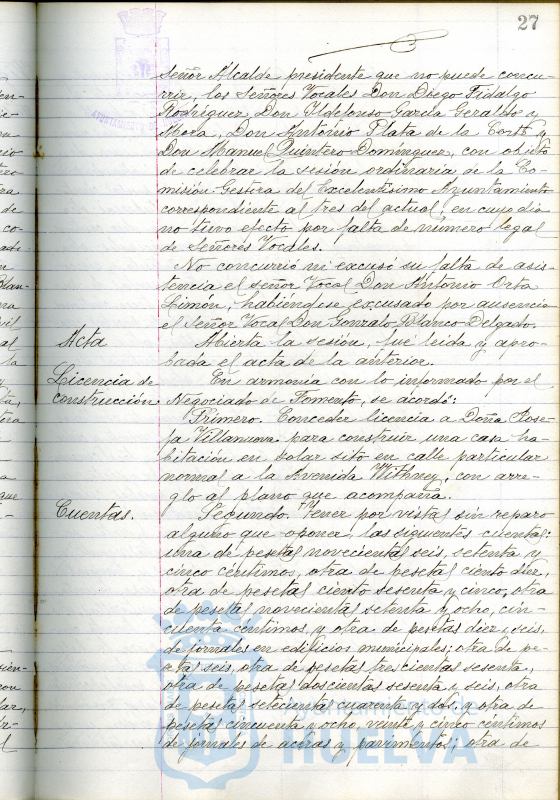 27
Señor Alcalde presidente que no puede concu-
rrir, los Señores Vocales Don Diego Fidalgo
Rodríguez, Don Ildefonso García Geraldo y
Mora, Don Antonio Plata de la Corte y
Don Manuel Quintero Domínguez, con objeto
de celebrar la sesión ordinaria de la Co-
misión Gestora del Excelentísimo Ayuntamiento
correspondiente al tres del actual, en cuyo dia
no tuvo efecto por falta de número legal
de Señores Vocales.
No concurrió ni excusó su falta de asis-
tencia el señor Vocal Don Antonio Orta
Limón, habiéndose excusado por ausencia
el Señor Vocal Don Gonzalo Blanco Delgado.
Acta
Abierta la sesión, fué leida y apro-
bada el acta de la anterior.
Licencia de
construcción.
En armonía con lo informado por el
Negociado de Fomento, se acordó:
Primero. Conceder licencia a Doña Jose-
fa Villanueva para construir una casa ha-
bitación en solar sito en calle particular
normal a la Avenida Withney, con arre-
glo al plano que acompaña.
Cuentas.
Segundo. Tener por vistas sin reparo
alguno que oponer, las siguientes cuentas:
una de pesetas novecientas seis, setenta y
cinco céntimos, otra de pesetas ciento diez,
otra de pesetas ciento sesenta y cinco, otra
de pesetas novecientas setenta y ocho, cin-
cuenta céntimos, y otra de pesetas diez, seis,
de jornales en edificios municipales; otra de pe-
setas seis, otra de pesetas trescientas sesenta,
otra de pesetas doscientas sesenta y seis, otra
de pesetas setecientas cuarenta y dos, y otra de
pesetas cincuenta y ocho, veinte y cinco céntimos
de jornales de aceras y pavimentos; otra de
HUELVA